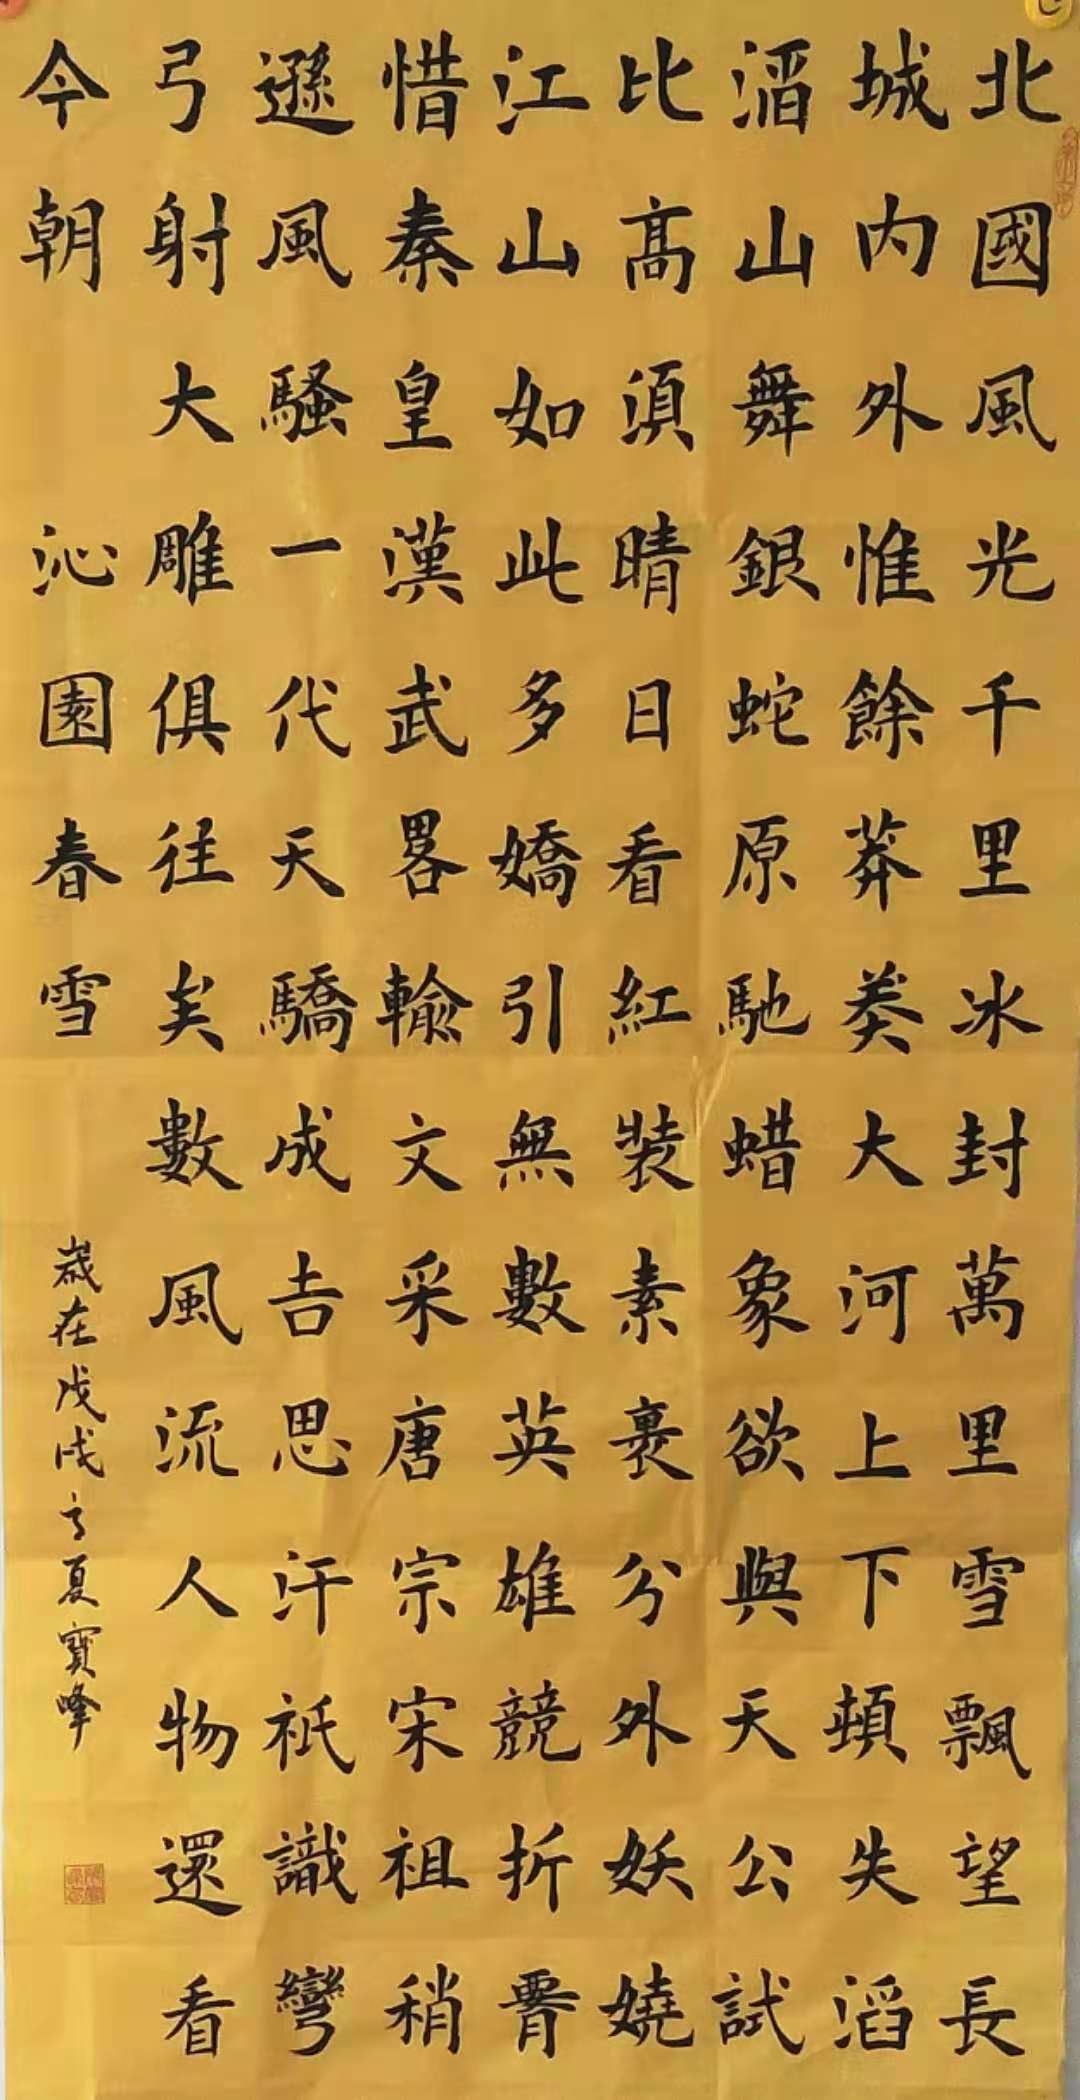 北國風光千里冰封萬里雪飄望長
城內外惟餘莽莽大河上下頓失滔
滔山舞銀蛇原馳蜡象欲與天公試
比高須晴日看紅裝素裹分外妖嬈
江山如此多嬌引無數英雄競折腰
惜秦皇漢武畧輸文采唐宗宋祖稍
遜風騷一代天驕成吉思汗祇識彎
弓射大雕俱往矣數風流人物還看
今朝 沁園春雪
歲在戊戌之夏寶峰